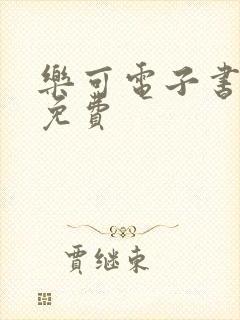 樂可電子書
免費
賈継東